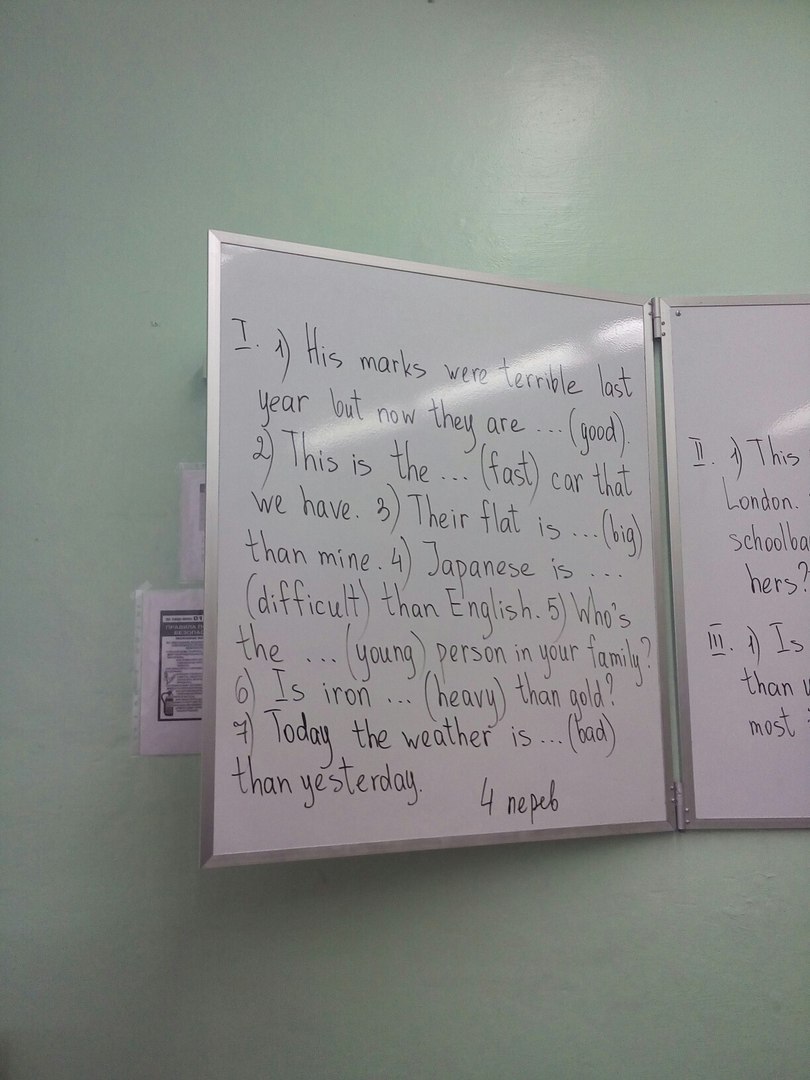 I. 1) His marks were terrible last
year but now they are ... (good).
2) This is the ... (fast) car that
we have. 3) Their flat is ... (big)
than mine. 4) Japanese is ...
(difficult) than English. 5) Who's
the ... (young) person in your family?
6) Is iron ... (heavy) than gold?
7) Today the weather is ... (bad)
than yesterday.
4 перев
II. 1) This
London.
schoolba
hers?
III. 1) Is
than
most
01
ПРАВИЛА
БЕЗОПАС